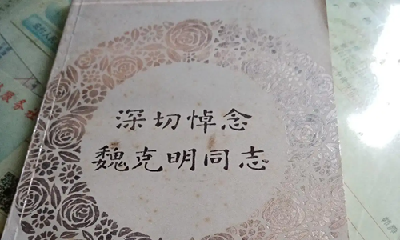 深切悼念
魏克明同志